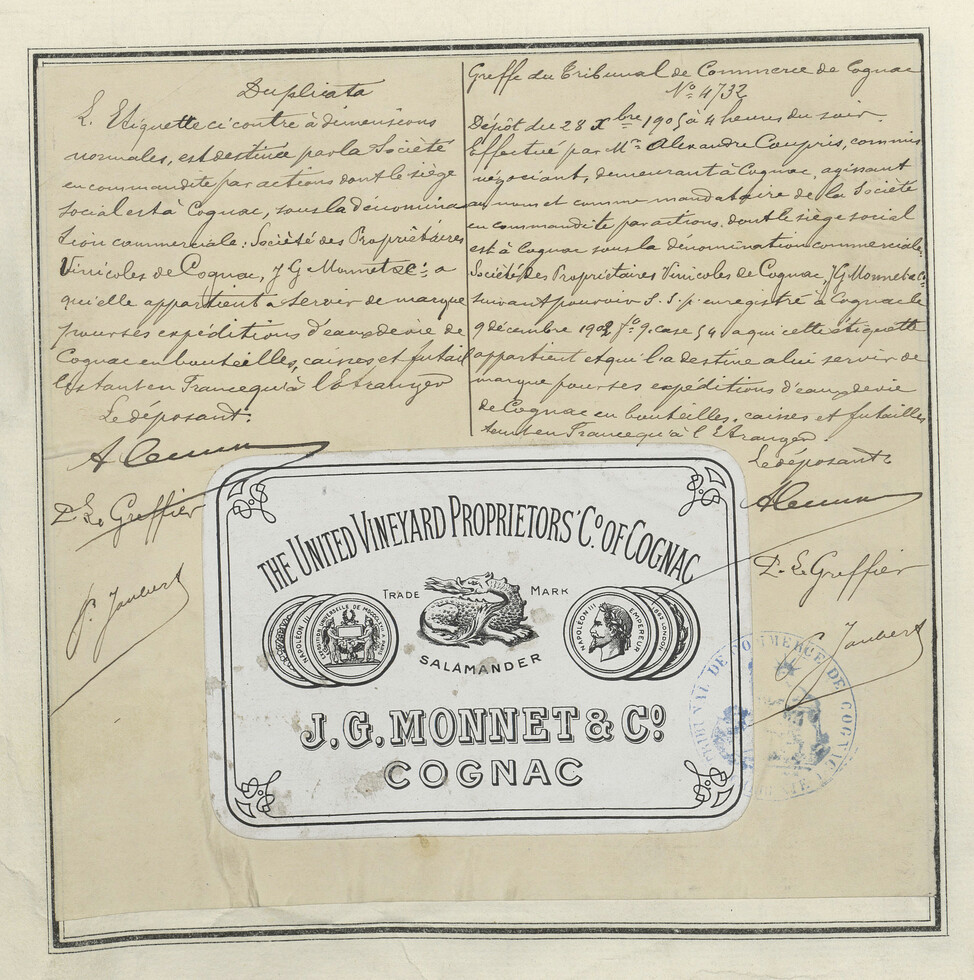 Duplicata
L'Etiquette ci contre à dimensions
normales, est destinée par la Société
en commandite par actions dont le siège
social est à Cognac, sous la dénomina
tion commerciale: Société des Propriétaires
Vinicoles de Cognac, J G Monnet & Cie: a
qu'elle appartient a servir de marque
pour ses expéditions d'eaux de vie de
Cognac en bouteilles, caisses et futail
les tant en France qu'à l'Etranger
Le déposant.
P. Le Greffier
P. Jaubert
Greffe du Tribunal de Commerce de Cognac
No 4732
Dépôt du 28 Xbre 1905 à 4 heures du soir.
Effectué par Mr Alexandre Coupris, commis
négociant, demeurant à Cognac, agissant
au nom et comme mandataire de la Société
en commandite par actions, dont le siège social
est à Cognac sous la dénomination commerciale:
Société des Propriétaires Vinicoles de Cognac, J G Monnet & Co
suivant pouvoir S. S. p. enregistré à Cognac le
9 décembre 1902 fo 9. case 54 a qui cette étiquette
appartient et qu'il a destine a lui servir de
marque pour ses expéditions d'eaux de vie
de Cognac en bouteilles, caisses et futailles
tant en France qu'à l'Etranger
Le déposant
P. Le Greffier
Jaubert
THE UNITED VINEYARD PROPRIETORS' Co. OF COGNAC
TRADE MARK
NAPOLÉON III
EXPOSITION UNIVERSELLE DE
NAPOLÉON III EMPEREUR
1862 LONDON
SALAMANDER
J.G. MONNET & Co.
COGNAC
TRIBUNAL DE COMMERCE DE COGNAC